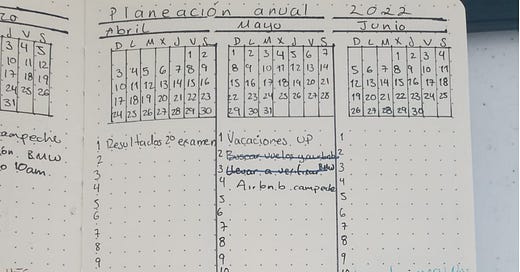 Planeación anual 2022
Abril
D L M X J V S
1 2
3 4 5 6 7 8 9
10 11 12 13 14 15 16
17 18 19 20 21 22 23
24 25 26 27 28 29 30
1 Resultados 2º examen
2
3
4
5
6
7
8
9
Mayo
D L M X J V S
1 2 3 4 5 6 7
8 9 10 11 12 13 14
15 16 17 18 19 20 21
22 23 24 25 26 27 28
29 30 31
1 Vacaciones UP
2 Buscar vuelos
3 Llevar a verificar BMW
4 Airbnb campeche
5
6
7
8
9
10
Junio
D L M X J V S
1 2 3 4
5 6 7 8 9 10 11
12 13 14 15 16 17 18
19 20 21 22 23 24 25
26 27 28 29 30
1
2
3
4
5
6
7
8
9
J V S
3 4 5
10 11 12
17 18 19
24 25 26
31
campeche
BMW
10am.